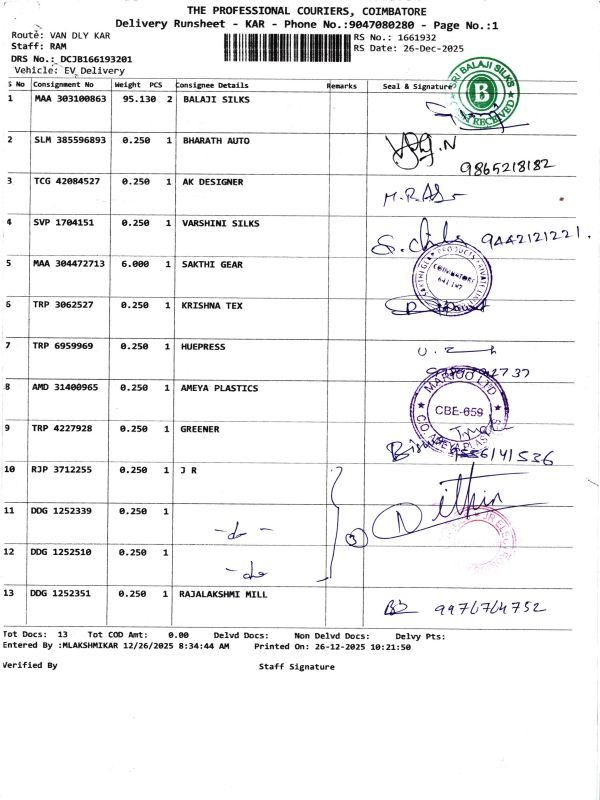 THE PROFESSIONAL COURIERS, COIMBATORE
Delivery Runsheet - KAR - Phone No.:9047080280 - Page No.:1
Route: VAN DLY KAR
RS No.: 1661932
Staff: RAM
RS Date: 26-Dec-2025
DRS No.: DCJB166193201
Vehicle: EV Delivery
S No Consignment No Weight PCS Consignee Details Remarks Seal & Signature
1 MAA 303100863 95.130 2 BALAJI SILKS
SRI BALAJI SILKS
B
RECEIVED
2 SLM 385596893 0.250 1 BHARATH AUTO
9865218182
3 TCG 42084527 0.250 1 AK DESIGNER
4 SVP 1704151 0.250 1 VARSHINI SILKS
9442121221.
5 MAA 304472713 6.000 1 SAKTHI GEAR
SAKTHI GEAR PRODUCTS PRIVATE
COIMBATORE
6 TRP 3062527 0.250 1 KRISHNA TEX
7 TRP 6959969 0.250 1 HUEPRESS
8 AMD 31400965 0.250 1 AMEYA PLASTICS
LTD
CBE-659
9 TRP 4227928 0.250 1 GREENER
9556141536
10 RJP 3712255 0.250 1 J R
11 DDG 1252339 0.250 1
-do-
3
Nithin
12 DDG 1252510 0.250 1
-do
13 DDG 1252351 0.250 1 RAJALAKSHMI MILL
9976764752
Tot Docs: 13 Tot COD Amt: 0.00 Delvd Docs: Non Delvd Docs: Delvy Pts:
Entered By :MLAKSHMIKAR 12/26/2025 8:34:44 AM Printed On: 26-12-2025 10:21:50
Verified By Staff Signature